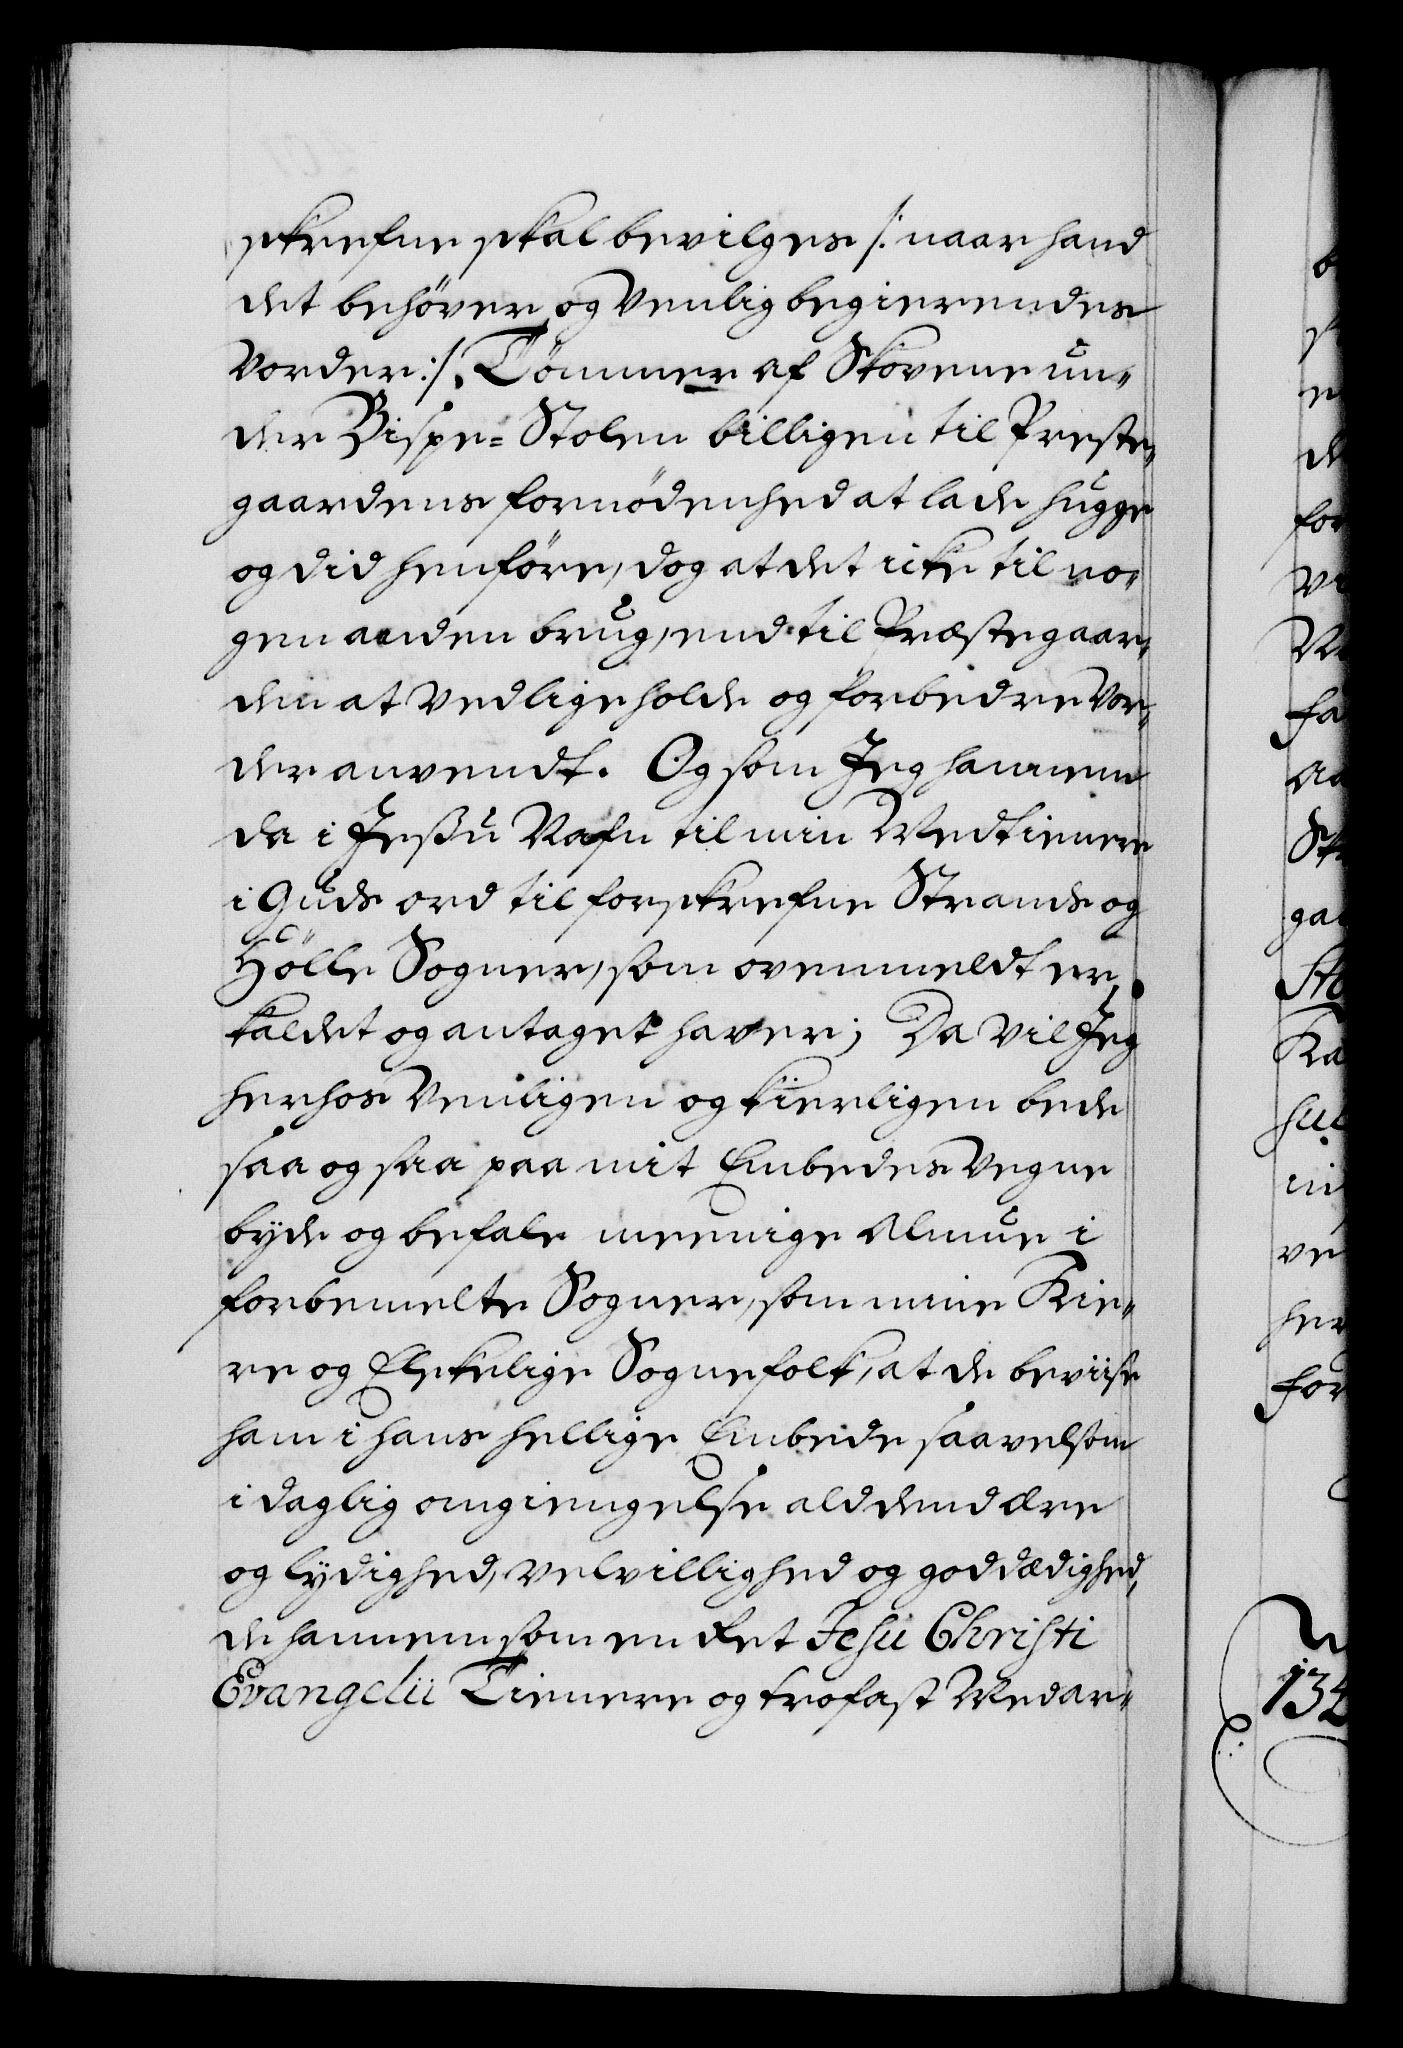 skrefne skal bevilges /: naar hand
det behöver og Venlig begierendes
Vorder :/, Tömmer af Skovene un-
der Bispe=Stolen billigen til Preste-
gaardens fornödenhed at lade hugge
og did henföre, dog at det icke til no-
gen anden brug, end til Præstegaar-
den at Vedligeholde og forbedre Vor-
der anvendt. Og som Jeg hannem
da i Jessu Nafn til min Medtienere
i Guds ord til forskrefne Strands og
Hölle Sogner, som ovenmeldt er,
kaldet og antaget haver; Da Vil Jeg
herhos Venligen og kierligen bede
saa og saa paa mit Embedes Vegne
byde og befale meenige Almue i
forbemelte Sogner, som mine Kie-
re og Elskelige Sognefolk, at de beviise
ham i hans hellige Embede saavelsom
i daglig omgiengelse ald dend ære
og lydighed, Velvillighed og goddædighed,
de hannem som en Ret Jesu Christi
Evangelii Tienere og trofast Medar-